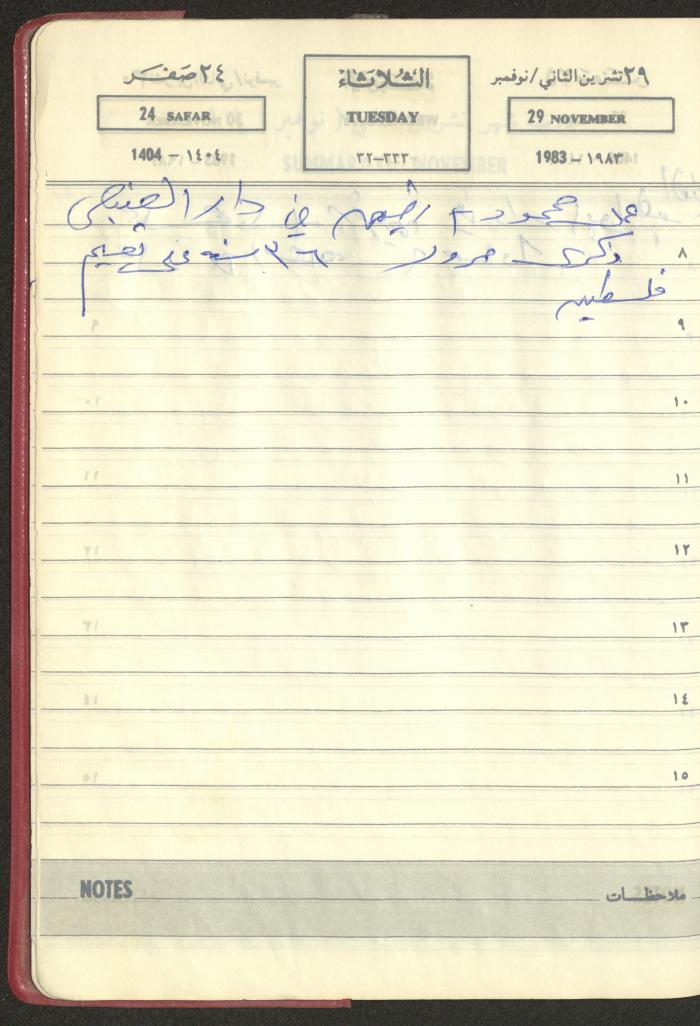 ٢٤ صَفَر
الثلاثاء
٢٩ تشرين الثاني / نوفمبر
24 SAFAR
TUESDAY
29 NOVEMBER
1404 - ١٤٠٤
٣٣٣-٢٢
1983 - ١٩٨٣
عمل محمود في دار
ذكرى مرور ٣٦ سنة على تقسيم
فلسطين
٨
٩
١٠
١١
١٢
١٣
١٤
١٥
NOTES
ملاحظات